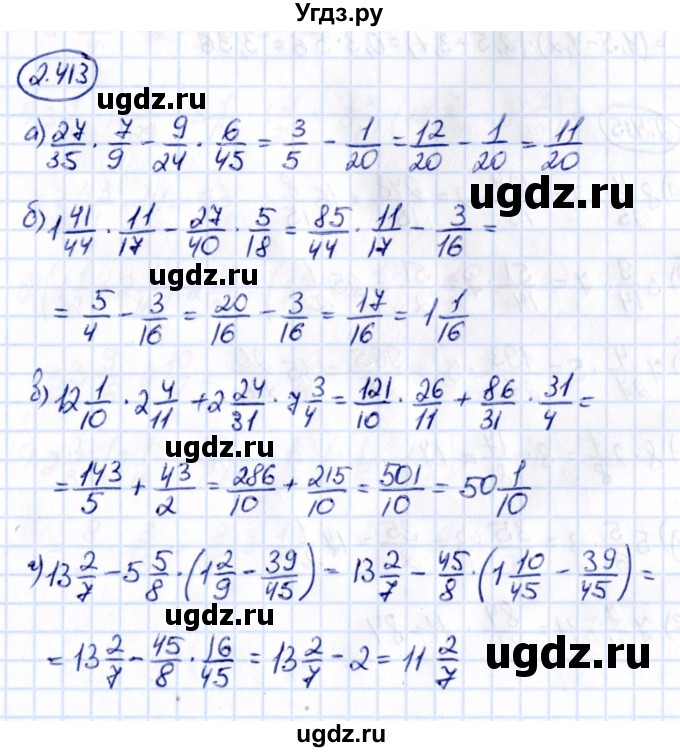 Угдз.ру
2.413
ugdz.ru
а) 27/35 · 7/9 − 9/24 · 6/45 = 3/5 − 1/20 = 12/20 − 1/20 = 11/20
ugdz.ru
ugdz.ru
б) 1 41/44 · 11/17 − 27/40 · 5/18 = 85/44 · 11/17 − 3/16 =
ugdz.ru
= 5/4 − 3/16 = 20/16 − 3/16 = 17/16 = 1 1/16
ugdz.ru
в) 12 1/10 · 2 4/11 + 2 24/31 · 7 3/4 = 121/10 · 26/11 + 86/31 · 31/4 =
ugdz.ru
= 143/5 + 43/2 = 286/10 + 215/10 = 501/10 = 50 1/10
ugdz.ru
ugdz.ru
г) 13 2/7 − 5 5/8 · (1 2/9 − 39/45) = 13 2/7 − 45/8 · (1 10/45 − 39/45) =
ugdz.ru
= 13 2/7 − 45/8 · 16/45 = 13 2/7 − 2 = 11 2/7
ugdz.ru
ugdz.ru